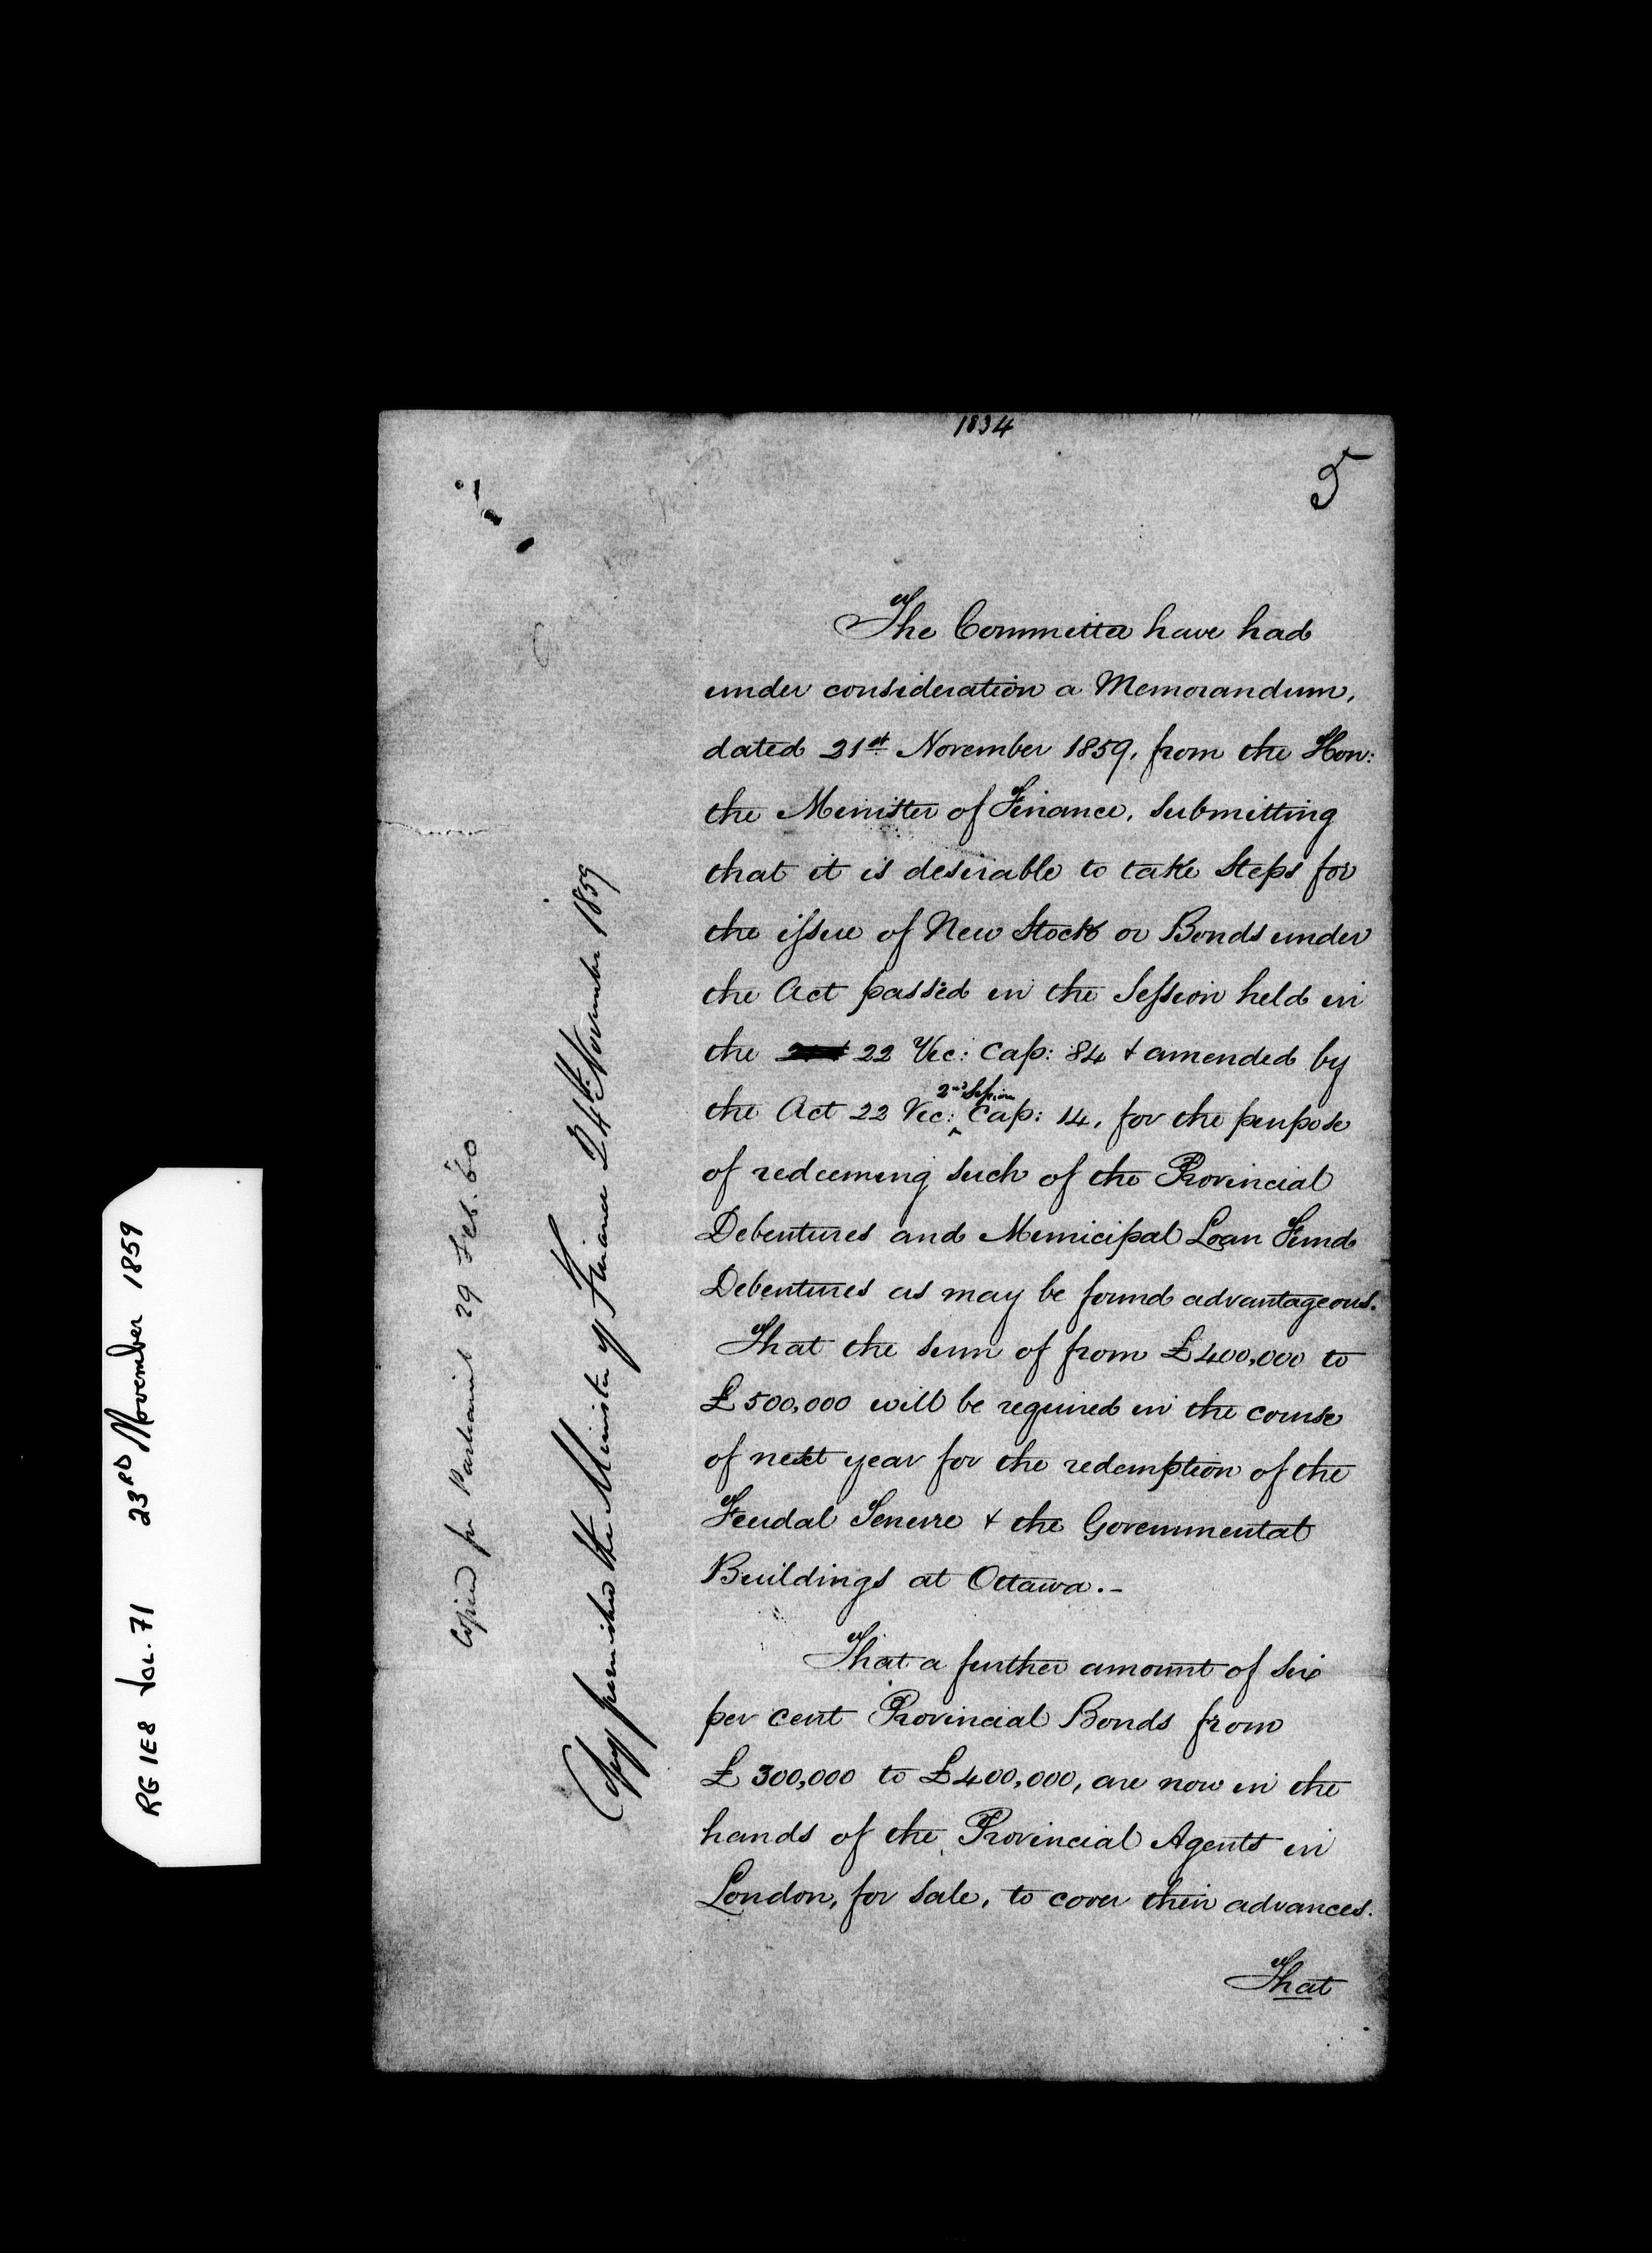 1834
5
The Committee have had
under consideration a Memorandum,
dated 21st November 1859, from the Hon:
the Minister of Finance, submitting
that it is desirable to take Steps for
the issue of New Stock or Bonds under
the Act passed in the Session held in
the 22 Vic: Cap: 84 & amended by
2nd Session
the Act 22 Vic: Cap: 14, for the purpose
of redeeming such of the Provincial
Debentures and Municipal Loan Fund
Debentures as may be found advantageous.
That the sum of from £400,000 to
£500,000 will be required in the course
of next year for the redemption of the
Feudal Tenure & the Governmental
Buildings at Ottawa.-
That a further amount of six
per cent Provincial Bonds from
£300,000 to £400,000, are now in the
hands of the Provincial Agents in
London, for sale, to cover their advances.
That
Copy furnished the Minister of Finance 24th November 1859
Copied for Parliament 29 Feb. 60
RG 1E8 Vol. 71 23RD November 1859